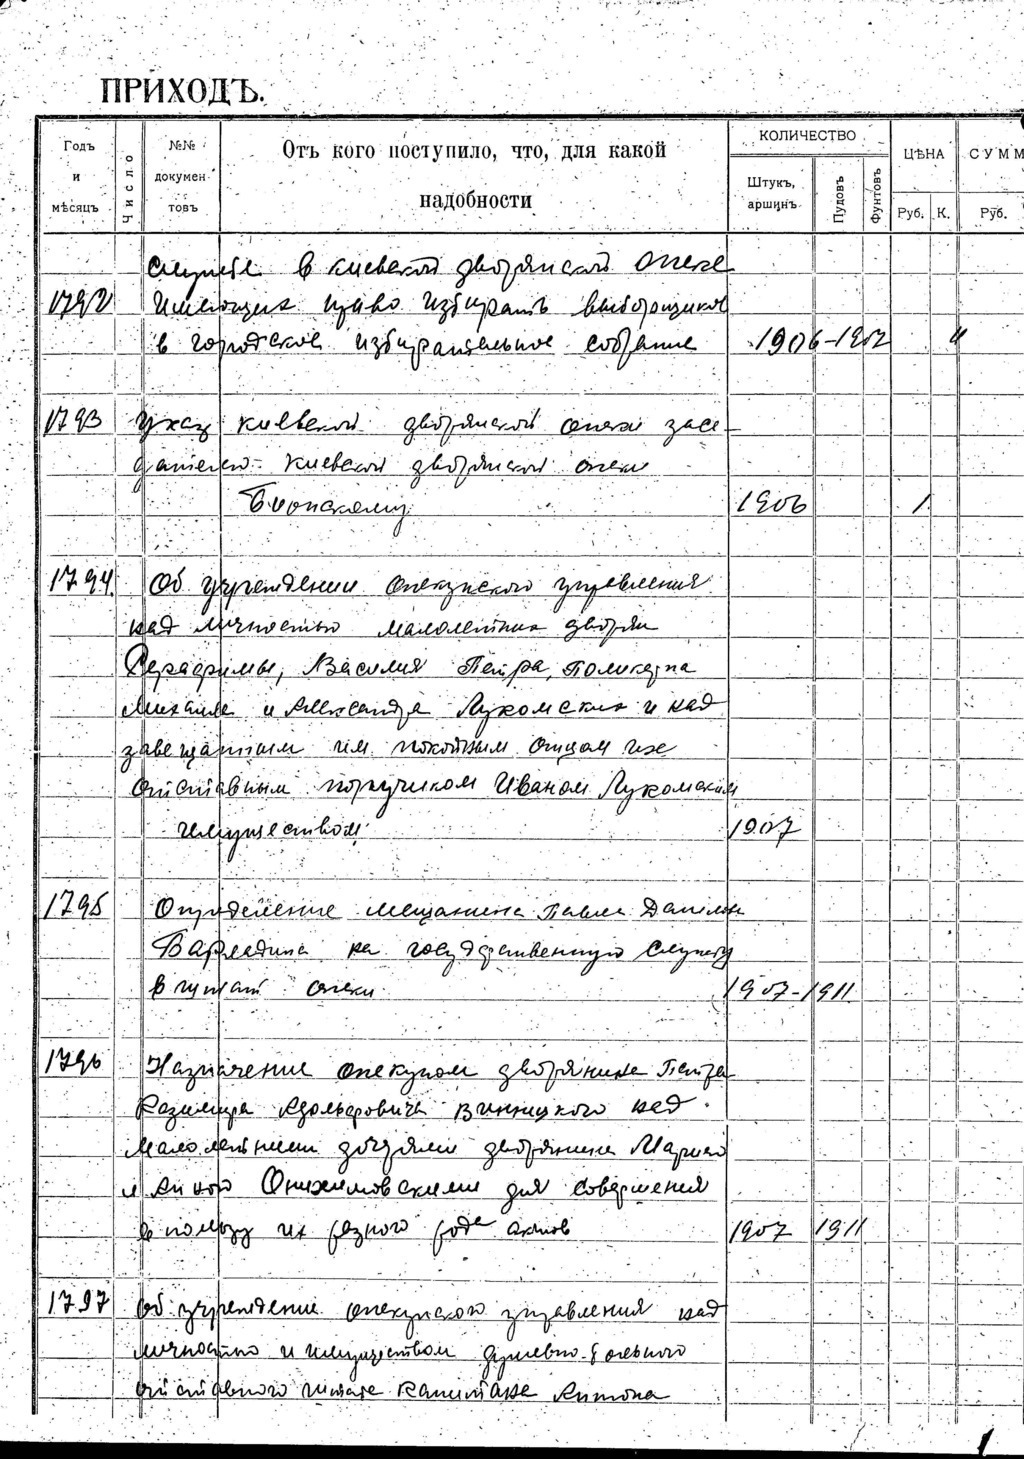 ПРИХОДЪ.
Годъ и мѣсяцъ
Число
№№ докумен-товъ
Отъ кого поступило, что, для какой надобности
КОЛИЧЕСТВО
Штукъ, аршинъ.
Пудовъ
Фунтовъ
ЦѢНА
Руб. К.
СУММ
Руб.
службе в киевской дворянской опеке
1792 имеющих право избирать выборщиков
в городское избирательное собрание 1906-1912 "
1793 Указ киевской дворянской опеки засе-
дателю киевской дворянской опеки
1906 1
1794. Об учреждении опекунского управления
над личностью малолетних дворян
Серафимы, Василия Петра, Поликарпа
Михаила и Александра Лукомских и над
завещанным им покойным отцом их
отставным поручиком Иваном Лукомским
имуществом 1907
1795 Определение мещанина Павла Данилы
на государственную службу
в штат опеки 1907-1911
1796 Назначение опекуном дворянина Петра
Казимира Адольфовича Винницкого над
малолетними дочерями дворянина Марией
и Анной Онихимовскими для совершения
в пользу их разного рода актов 1907 1911
1797 Об учреждение опекунского управления над
личностью и имуществом душевно-больного
отставного штабс капитана Антона
1